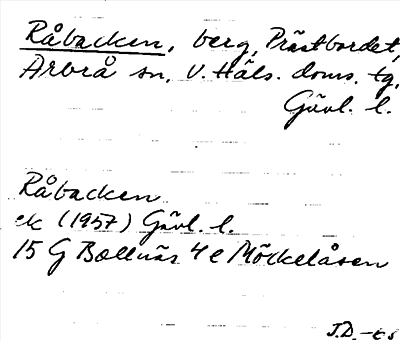 Råbacken, berg, Prästbordet,
Arbrå sn, V. Häls. doms. tg,
Gävl. l.
Råbacken
ek (1957) Gävl. l.
15 G Bollnäs 4 e Möckelåsen
J.D.